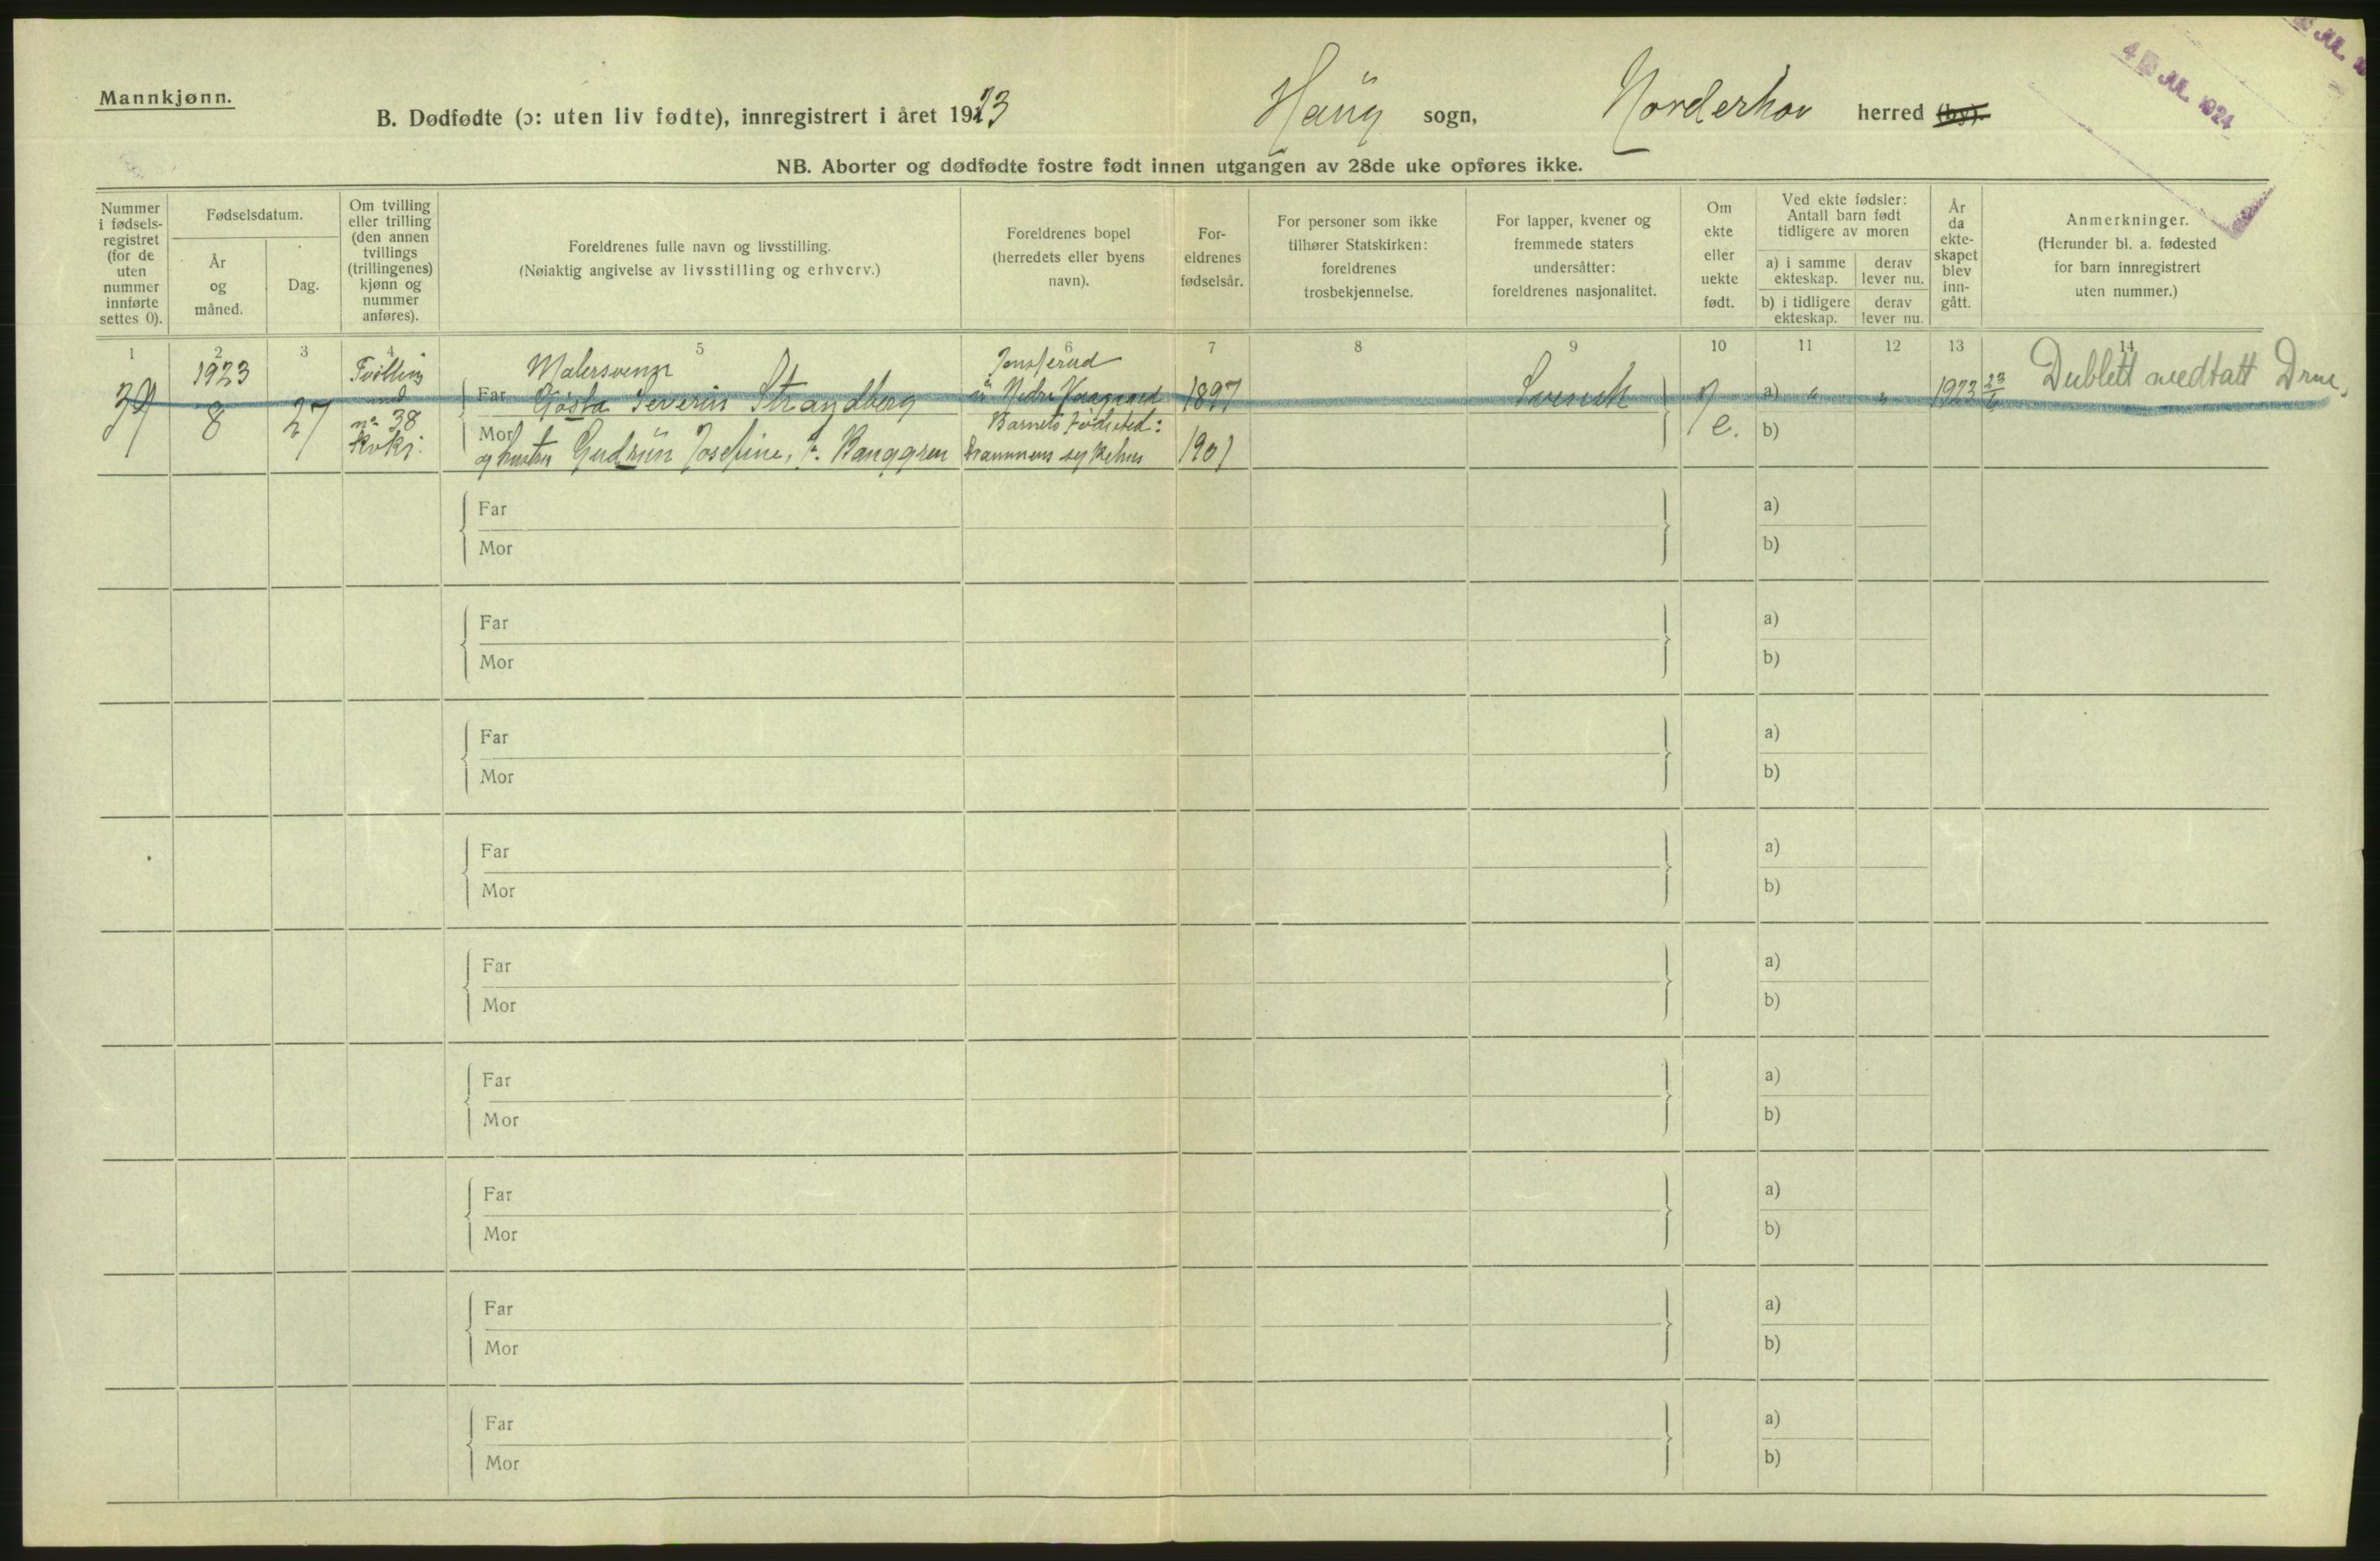 Mannkjønn.
B. Dødfødte (ɔ: uten liv fødte), innregistrert i året 1923
Haug sogn, Norderhov herred (by).
4 JUL. 1924
JUL.
NB. Aborter og dødfødte fostre født innen utgangen av 28de uke opføres ikke.
Nummer i fødsels-registret (for de uten nummer innførte settes 0).
Fødselsdatum.
År og måned.
Dag.
Om tvilling eller trilling (den annen tvillings (trillingenes) kjønn og nummer anføres).
Foreldrenes fulle navn og livsstilling.
(Nøiaktig angivelse av livsstilling og erhverv.)
Foreldrenes bopel (herredets eller byens navn).
For-eldrenes fødselsår.
For personer som ikke tilhører Statskirken: foreldrenes trosbekjennelse.
For lapper, kvener og fremmede staters undersåtter: foreldrenes nasjonalitet.
Om ekte eller uekte født.
Ved ekte fødsler: Antall barn født tidligere av moren
a) i samme ekteskap.
derav lever nu.
b) i tidligere ekteskap.
derav lever nu.
År da ekte-skapet blev inn-gått.
Anmerkninger.
(Herunder bl. a. fødested for barn innregistrert uten nummer.)
1 2 3 4 5 6 7 8 9 10 11 12 13 14
39
1923
8
27
Tvilling
med
no 38
kvkj.
Malersvenn
Far Gösta Severin Strandberg
Mor
og hustru Gudrun Josefine, f. Banggren
Barnets fødested:
Drammens sykehus
1897
1901
Svensk
e.
a) " "
b)
1923 23/6
Dublett medtatt Drm.
Far a)
Mor b)
Far a)
Mor b)
Far a)
Mor b)
Far a)
Mor b)
Far a)
Mor b)
Far a)
Mor b)
Far a)
Mor b)
Far a)
Mor b)
Far a)
Mor b)